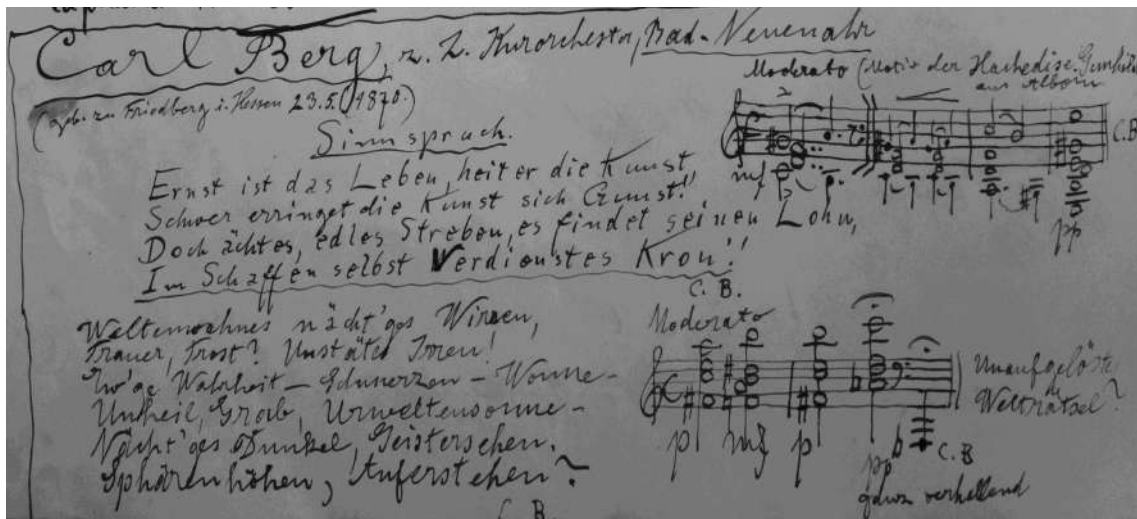 Carl Berg, z. Z. Kurorchester, Bad-Neuenahr
(geb. zu Friedberg i. Hessen 23.5.1870.)
Moderato (Motiv der
aus Album
mf
pp
C.B.
Sinnspruch.
Ernst ist das Leben, heiter die Kunst,
Schwer erringet die Kunst sich Gunst!!
Doch ächtes, edles Streben, es findet seinen Lohn,
Im Schaffen selbst Verdienstes Kron'!!
C. B.
Weltenwehnes nächt'ges Wirren,
Trauer, Trost? Unstätes Irren!
Ew'ge Wahrheit – Schmerzen – Wonne –
Unheil, Grab, Urweltensonne –
Nächt'ges Dunkel, Geistersehen,
Sphärenhöhen, Auferstehen?
C. B.
Moderato
p mf p pp
ganz verhallend
C. B
Unaufgelöste
Welträtsel?